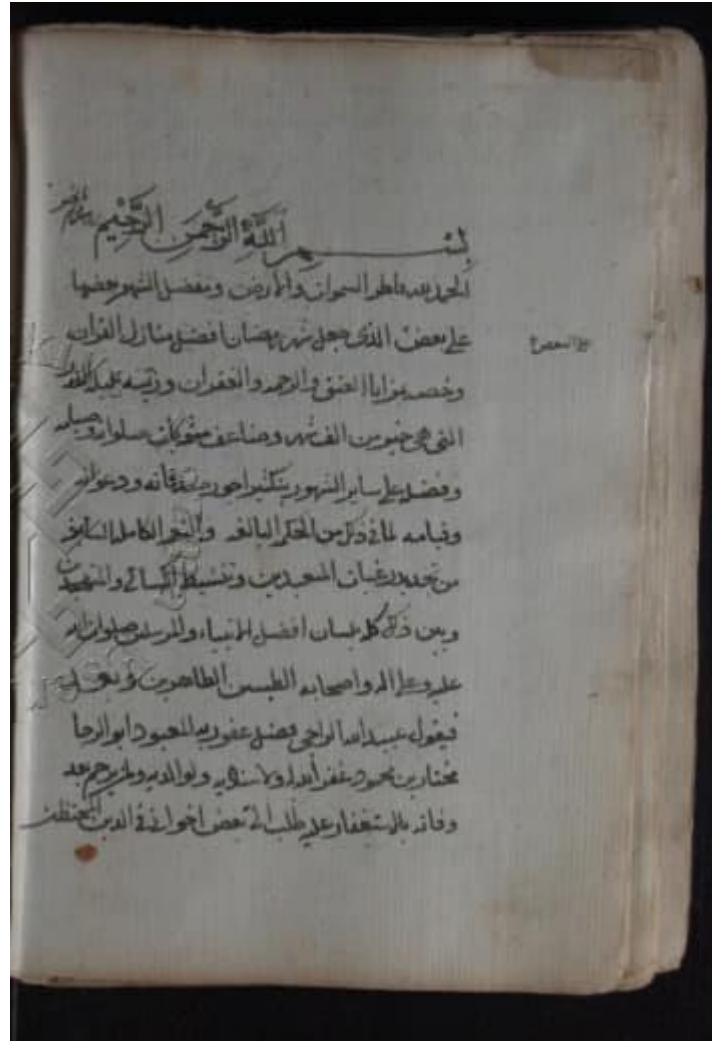 بسم الله الرحمن الرحيم
الحمد لله فاطر السموات والارض ومفضل الشهور بعضها
على بعض الذى جعل شهر رمضان افضل منازل القران
على البعض
وخصه بمزايا العتق والرحمه والغفران وزينه بليلة القدر
التى هى خير من الف شهر وضاعف مثوبات صلواته وصيامه
وفضله على ساير الشهور بتكثير اجور صدقاته ودعواته
وقيامه لما فى ذلك من الحكم البالغه والنعم الكامله السابغه
من تجديد رغبات المتعبدين وتنشيط الكسالى
وبين ذلك كله بلسان افضل الانبياء والمرسلين صلوات الله
عليه وعلى اله واصحابه الطيبين الطاهرين وبعد
فيقول عبيد الله الراجى فضل عفو ربه المعبود ابو الرجا
مختار بن محمود غفر الله له ولاستاذيه ولوالديه ولمن يرحم بعد
وفاته بالاستغفار عليه طلب الى بعض اخوانى فى الدين